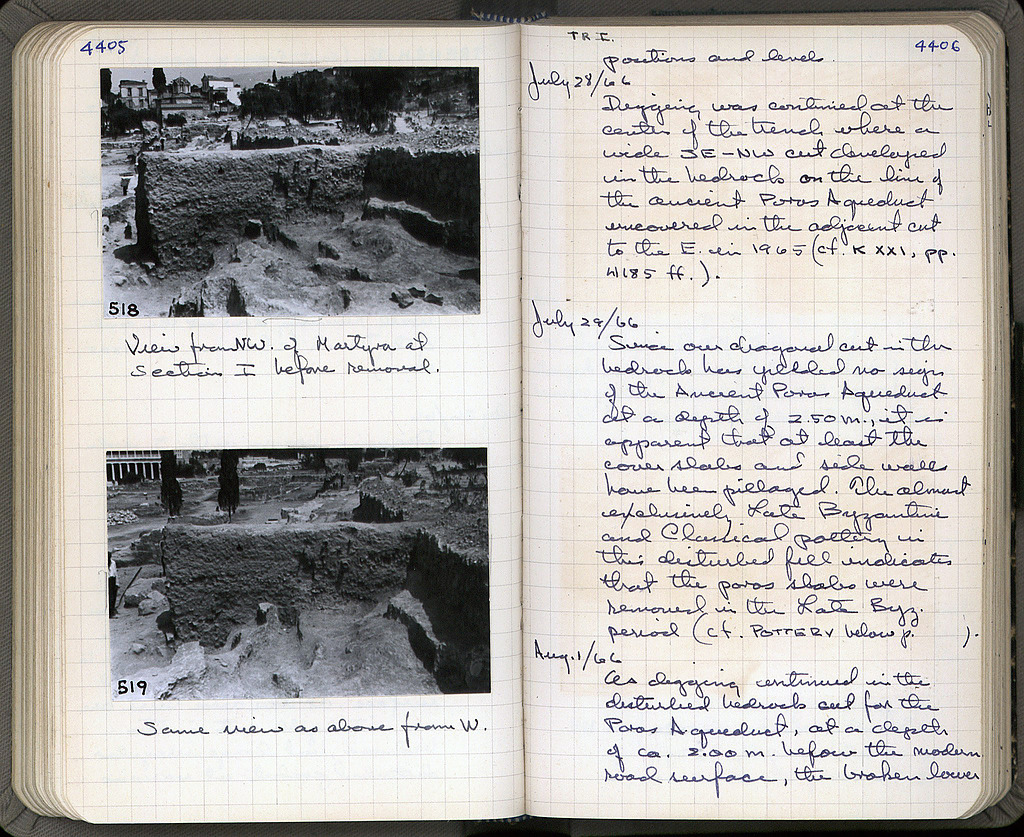 4405
518
View from NW. of Martyra at
Section I before removal.
519
Same view as above from W.
TR I.
4406
positions and levels.
July 28/66
Digging was continued at the
center of the trench where a
wide SE-NW cut developed
in the bedrock on the line of
the ancient Poros Aqueduct
uncovered in the adjacent cut
to the E. in 1965 (cf. K XXI, pp.
4185 ff.).
July 29/66
Since our diagonal cut in the
bedrock has yielded no sign
of the Ancient Poros Aqueduct
at a depth of 2.50 m., it is
apparent that at least the
cover slabs and side walls
have been pillaged. The almost
exclusively Late Byzantine
and Classical pottery in
this disturbed fill indicates
that the poros slabs were
removed in the Late Byz.
period (cf. POTTERY below p. ).
Aug. 1/66
As digging continued in the
disturbed bedrock cut for the
Poros Aqueduct, at a depth
of ca. 2.00 m. below the modern
road surface, the broken lower